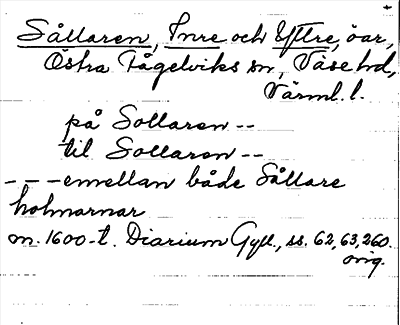 Sållaren, Inre och Yttre, öar,
Östra Fågelviks sn, Väse hd,
Värml. l.
på Sollaren --
til Sollaren --
- - - emellan både Sållare
holmarnar
m. 1600-t. Diarium Gyll., ss. 62, 63, 260.
orig.